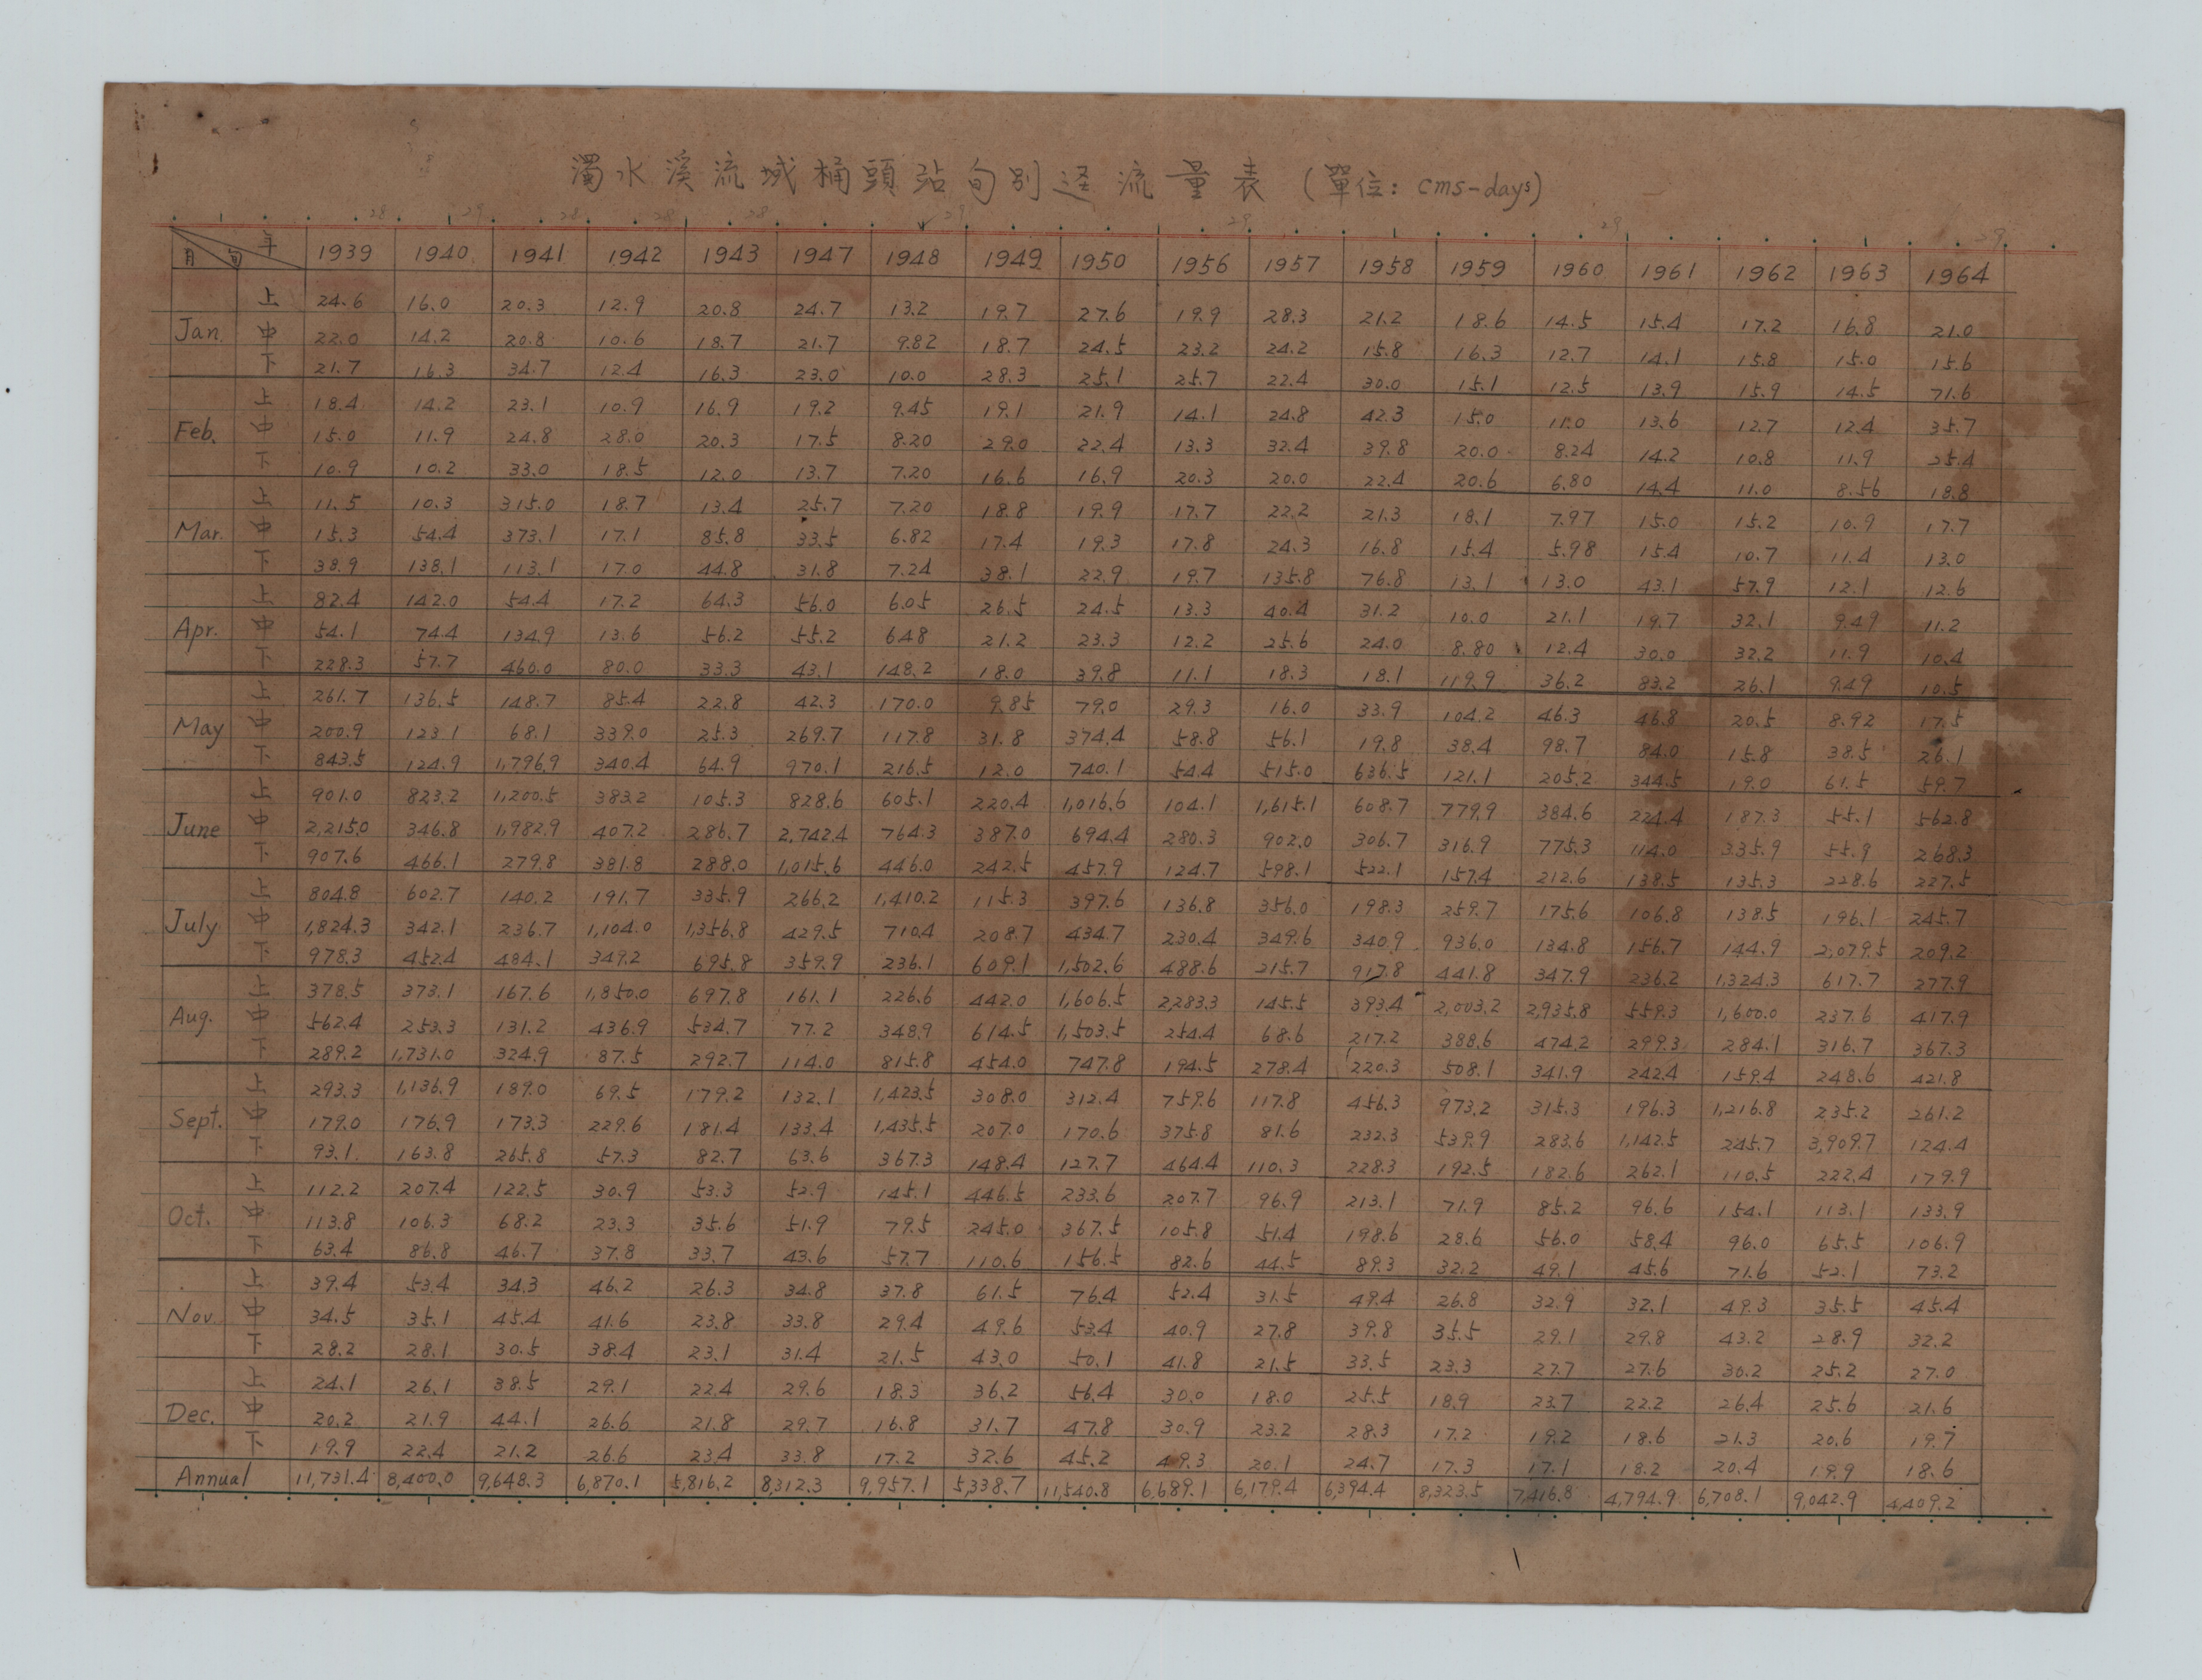 濁水溪流域桶頭站旬別逕流量表 (單位: cms-days)
28 29 28 28 28 29 29 29 29
月 旬 年 1939 1940 1941 1942 1943 1947 1948 1949 1950 1956 1957 1958 1959 1960 1961 1962 1963 1964
Jan. 上 24.6 16.0 20.3 12.9 20.8 24.7 13.2 19.7 27.6 19.9 28.3 21.2 18.6 14.5 15.4 17.2 16.8 21.0
中 22.0 14.2 20.8 10.6 18.7 21.7 9.82 18.7 24.5 23.2 24.2 15.8 16.3 12.7 14.1 15.8 15.0 15.6
下 21.7 16.3 34.7 12.4 16.3 23.0 10.0 28.3 25.1 25.7 22.4 30.0 15.1 12.5 13.9 15.9 14.5 71.6
Feb. 上 18.4 14.2 23.1 10.9 16.9 19.2 9.45 19.1 21.9 14.1 24.8 42.3 15.0 11.0 13.6 12.7 12.4 35.7
中 15.0 11.9 24.8 28.0 20.3 17.5 8.20 29.0 22.4 13.3 32.4 39.8 20.0 8.24 14.2 10.8 11.9 25.4
下 10.9 10.2 33.0 18.5 12.0 13.7 7.20 16.6 16.9 20.3 20.0 22.4 20.6 6.80 14.4 11.0 8.56 18.8
Mar. 上 11.5 10.3 315.0 18.7 13.4 25.7 7.20 18.8 19.9 17.7 22.2 21.3 18.1 7.97 15.0 15.2 10.9 17.7
中 15.3 54.4 373.1 17.1 85.8 33.5 6.82 17.4 19.3 17.8 24.3 16.8 15.4 5.98 15.4 10.7 11.4 13.0
下 38.9 138.1 113.1 17.0 44.8 31.8 7.24 38.1 22.9 19.7 135.8 76.8 13.1 13.0 43.1 57.9 12.1 12.6
Apr. 上 82.4 142.0 54.4 17.2 64.3 56.0 6.05 26.5 24.5 13.3 40.4 31.2 10.0 21.1 19.7 32.1 9.49 11.2
中 54.1 74.4 134.9 13.6 56.2 55.2 648 21.2 23.3 12.2 25.6 24.0 8.80 12.4 30.0 32.2 11.9 10.4
下 228.3 57.7 460.0 80.0 33.3 43.1 148.2 18.0 39.8 11.1 18.3 18.1 119.9 36.2 83.2 26.1 9.49 10.5
May 上 261.7 136.5 148.7 85.4 22.8 42.3 170.0 9.85 79.0 29.3 16.0 33.9 104.2 46.3 46.8 20.5 8.92 17.5
中 200.9 123.1 68.1 339.0 25.3 269.7 117.8 31.8 374.4 58.8 56.1 19.8 38.4 98.7 84.0 15.8 38.5 26.1
下 843.5 124.9 1,796.9 340.4 64.9 970.1 216.5 12.0 740.1 54.4 515.0 636.5 121.1 205.2 344.5 19.0 61.5 59.7
June 上 901.0 823.2 1,200.5 383.2 105.3 828.6 605.1 220.4 1,016.6 104.1 1,615.1 608.7 779.9 384.6 224.4 187.3 55.1 562.8
中 2,215.0 346.8 1,982.9 407.2 286.7 2,742.4 764.3 387.0 694.4 280.3 902.0 306.7 316.9 775.3 114.0 335.9 55.9 268.3
下 907.6 466.1 279.8 381.8 288.0 1,015.6 446.0 242.5 457.9 124.7 598.1 522.1 157.4 212.6 138.5 135.3 228.6 227.5
July 上 804.8 602.7 140.2 191.7 335.9 266.2 1,410.2 115.3 397.6 136.8 356.0 198.3 259.7 175.6 106.8 138.5 196.1 245.7
中 1,824.3 342.1 236.7 1,104.0 1,356.8 429.5 710.4 208.7 434.7 230.4 349.6 340.9 936.0 134.8 156.7 144.9 2,079.5 209.2
下 978.3 452.4 484.1 349.2 695.8 359.9 236.1 609.1 1,502.6 488.6 215.7 917.8 441.8 347.9 236.2 1,324.3 617.7 277.9
Aug. 上 378.5 373.1 167.6 1,850.0 697.8 161.1 226.6 442.0 1,606.5 2,283.3 145.5 393.4 2,003.2 2,935.8 559.3 1,600.0 237.6 417.9
中 562.4 253.3 131.2 436.9 534.7 77.2 348.9 614.5 1,503.5 254.4 68.6 217.2 388.6 474.2 299.3 284.1 316.7 367.3
下 289.2 1,731.0 324.9 87.5 292.7 114.0 815.8 454.0 747.8 194.5 278.4 220.3 508.1 341.9 242.4 159.4 248.6 421.8
Sept. 上 293.3 1,136.9 189.0 69.5 179.2 132.1 1,423.5 308.0 312.4 759.6 117.8 456.3 973.2 315.3 196.3 1,216.8 235.2 261.2
中 179.0 176.9 173.3 229.6 181.4 133.4 1,435.5 207.0 170.6 375.8 81.6 232.3 539.9 283.6 1,142.5 245.7 3,909.7 124.4
下 93.1 163.8 265.8 57.3 82.7 63.6 367.3 148.4 127.7 464.4 110.3 228.3 192.5 182.6 262.1 110.5 222.4 179.9
Oct. 上 112.2 207.4 122.5 30.9 53.3 52.9 145.1 446.5 233.6 207.7 96.9 213.1 71.9 85.2 96.6 154.1 113.1 133.9
中 113.8 106.3 68.2 23.3 35.6 51.9 79.5 245.0 367.5 105.8 51.4 198.6 28.6 56.0 58.4 96.0 65.5 106.9
下 63.4 86.8 46.7 37.8 33.7 43.6 57.7 110.6 156.5 82.6 44.5 89.3 32.2 49.1 45.6 71.6 52.1 73.2
Nov. 上 39.4 53.4 34.3 46.2 26.3 34.8 37.8 61.5 76.4 52.4 31.5 49.4 26.8 32.9 32.1 49.3 35.5 45.4
中 34.5 35.1 45.4 41.6 23.8 33.8 29.4 49.6 53.4 40.9 27.8 39.8 35.5 29.1 29.8 43.2 28.9 32.2
下 28.2 28.1 30.5 38.4 23.1 31.4 21.5 43.0 50.1 41.8 21.5 33.5 23.3 27.7 27.6 30.2 25.2 27.0
Dec. 上 24.1 26.1 38.5 29.1 22.4 29.6 18.3 36.2 56.4 30.0 18.0 25.5 18.9 23.7 22.2 26.4 25.6 21.6
中 20.2 21.9 44.1 26.6 21.8 29.7 16.8 31.7 47.8 30.9 23.2 28.3 17.2 19.2 18.6 21.3 20.6 19.7
下 19.9 22.4 21.2 26.6 23.4 33.8 17.2 32.6 45.2 49.3 20.1 24.7 17.3 17.1 18.2 20.4 19.9 18.6
Annual 11,731.4 8,400.0 9,648.3 6,870.1 5,816.2 8,312.3 9,957.1 5,338.7 11,540.8 6,689.1 6,179.4 6,394.4 8,323.5 7,416.8 4,794.9 6,708.1 9,042.9 4,409.2